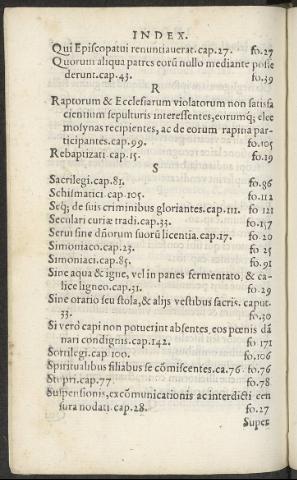 INDEX.
Qui Episcopatui renuntiauerat.cap.27. fo.27
Quorum aliqua patres eorũ nullo mediante posse
derunt.cap.43. fo.39
R
Raptorum & Ecclesiarum violatorum non satisfa
cientium sepulturis interessentes,eorumq; elee
mosynas recipientes, ac de eorum rapina par-
ticipantes.cap.99. fo.105
Rebaptizati.cap.15. fo.19
S
Sacrilegi.cap.81. fo.86
Schismatici.cap.105. fo.112
Seq; de suis criminibus gloriantes.cap.111. fo 121
Seculari curiæ tradi.cap.33. fo.157
Serui sine dñorum suorũ licentia.cap.17. fo.20
Simoniaco.cap.23. fo 25
Simoniaci.cap.85. fo.91
Sine aqua & igne, vel in panes fermentato, & ca-
lice ligneo.cap.31. fo.29
Sine orario seu stola,& alijs vestibus sacris. caput.
33. fo.30
Si verò capi non potuerint absentes,eos pœnis dã
nari condignis.cap.142. fo 171
Sortilegi.cap.100. fo.106
Spiritualibus filiabus se cõmiscentes.ca.76 fo.76
Stupri.cap.77. fo.78
Suspensionis,excõmunicationis ac interdicti cen
sura nodati.cap.28. fo.27
Super